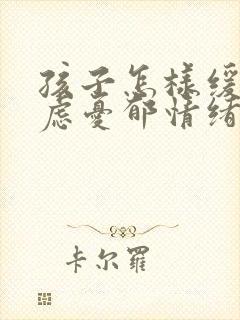 孩子怎樣緩
慮憂郁情緒
卡尔羅